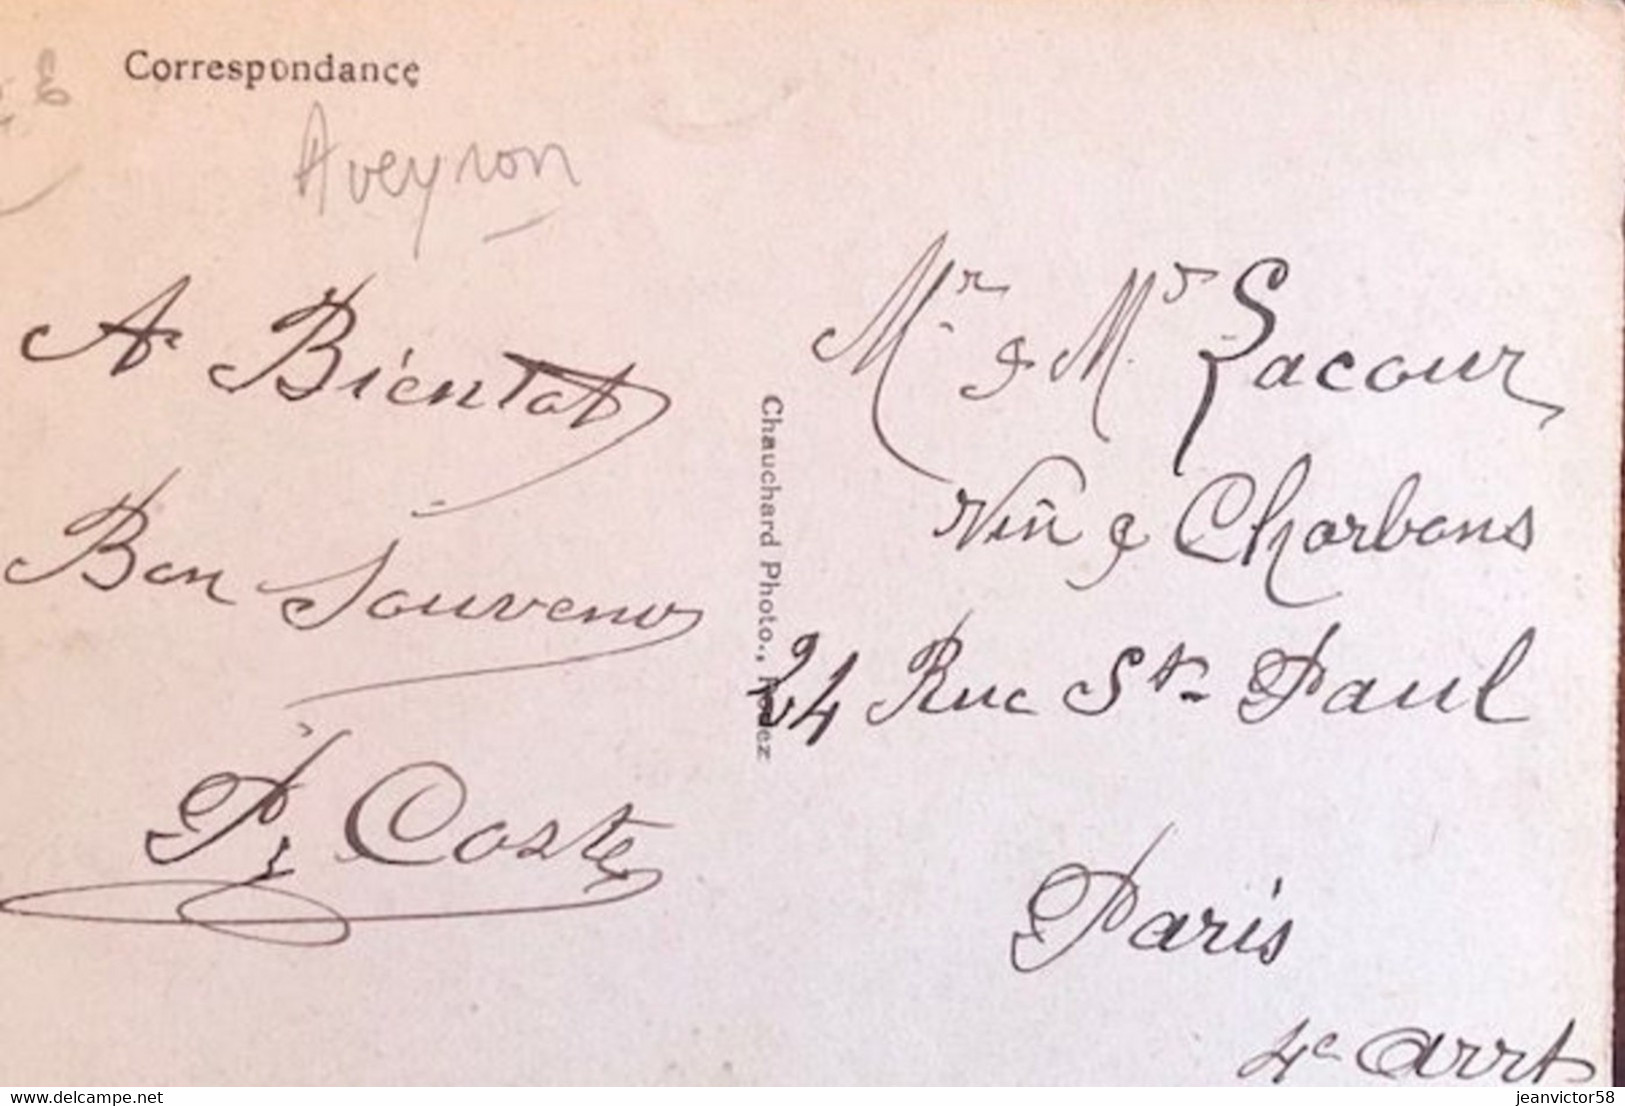 Correspondance
Aveyron
A Bientot
Bon Souvenir
P. Coste
Chauchard Photo., Rodez
Mr & Mr Lacour
Vin & Charbons
24 Rue St Paul
Paris
4e arrt
Delcampe.net
jeanvictor58